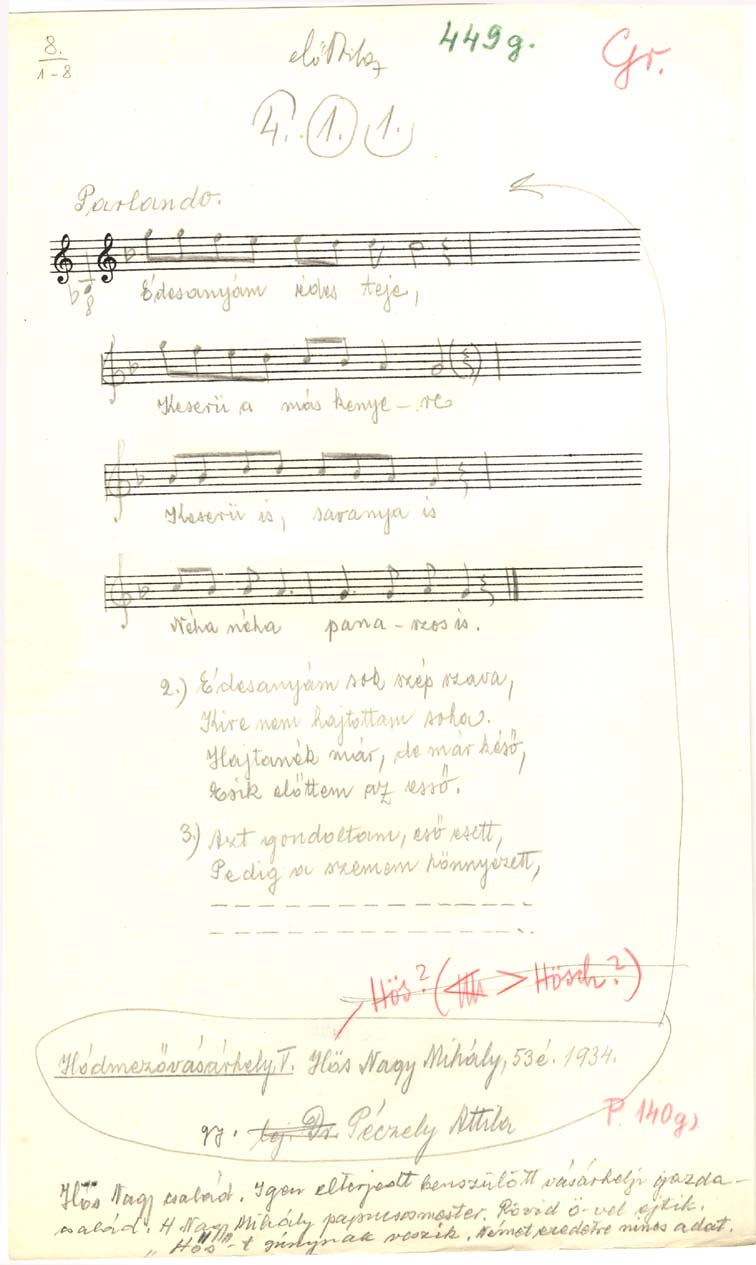 8.
1-8
449g.
Gr.
4. 1. 1.
Parlando.
8
Édesanyám édes teje,
Keserü a más kenye – re
Keserü is, savanya is
Néha néha pana – szos is.
2.) Édesanyám sok szép szava,
Kire nem hajtottam soha.
Hajtanék már, de már késő,
Esik előttem az eső.
3.) Azt gondoltam, eső esett,
Pedig a szemem könnyezett,
Hös? ( > Hösch?)
Hódmezővásárhely, V. Hős Nagy Mihály, 53é. 1934.
gy. Dr. Péczely Attila
P. 140g)
Hős Nagy család. Igen elterjedt benszülött vásárhelyi gazda–
család. H Nagy Mihály papucsosmester. Rövid ö-vel ejtik.
„Hös"-t gúnynak veszik. Német eredetre nincs adat.